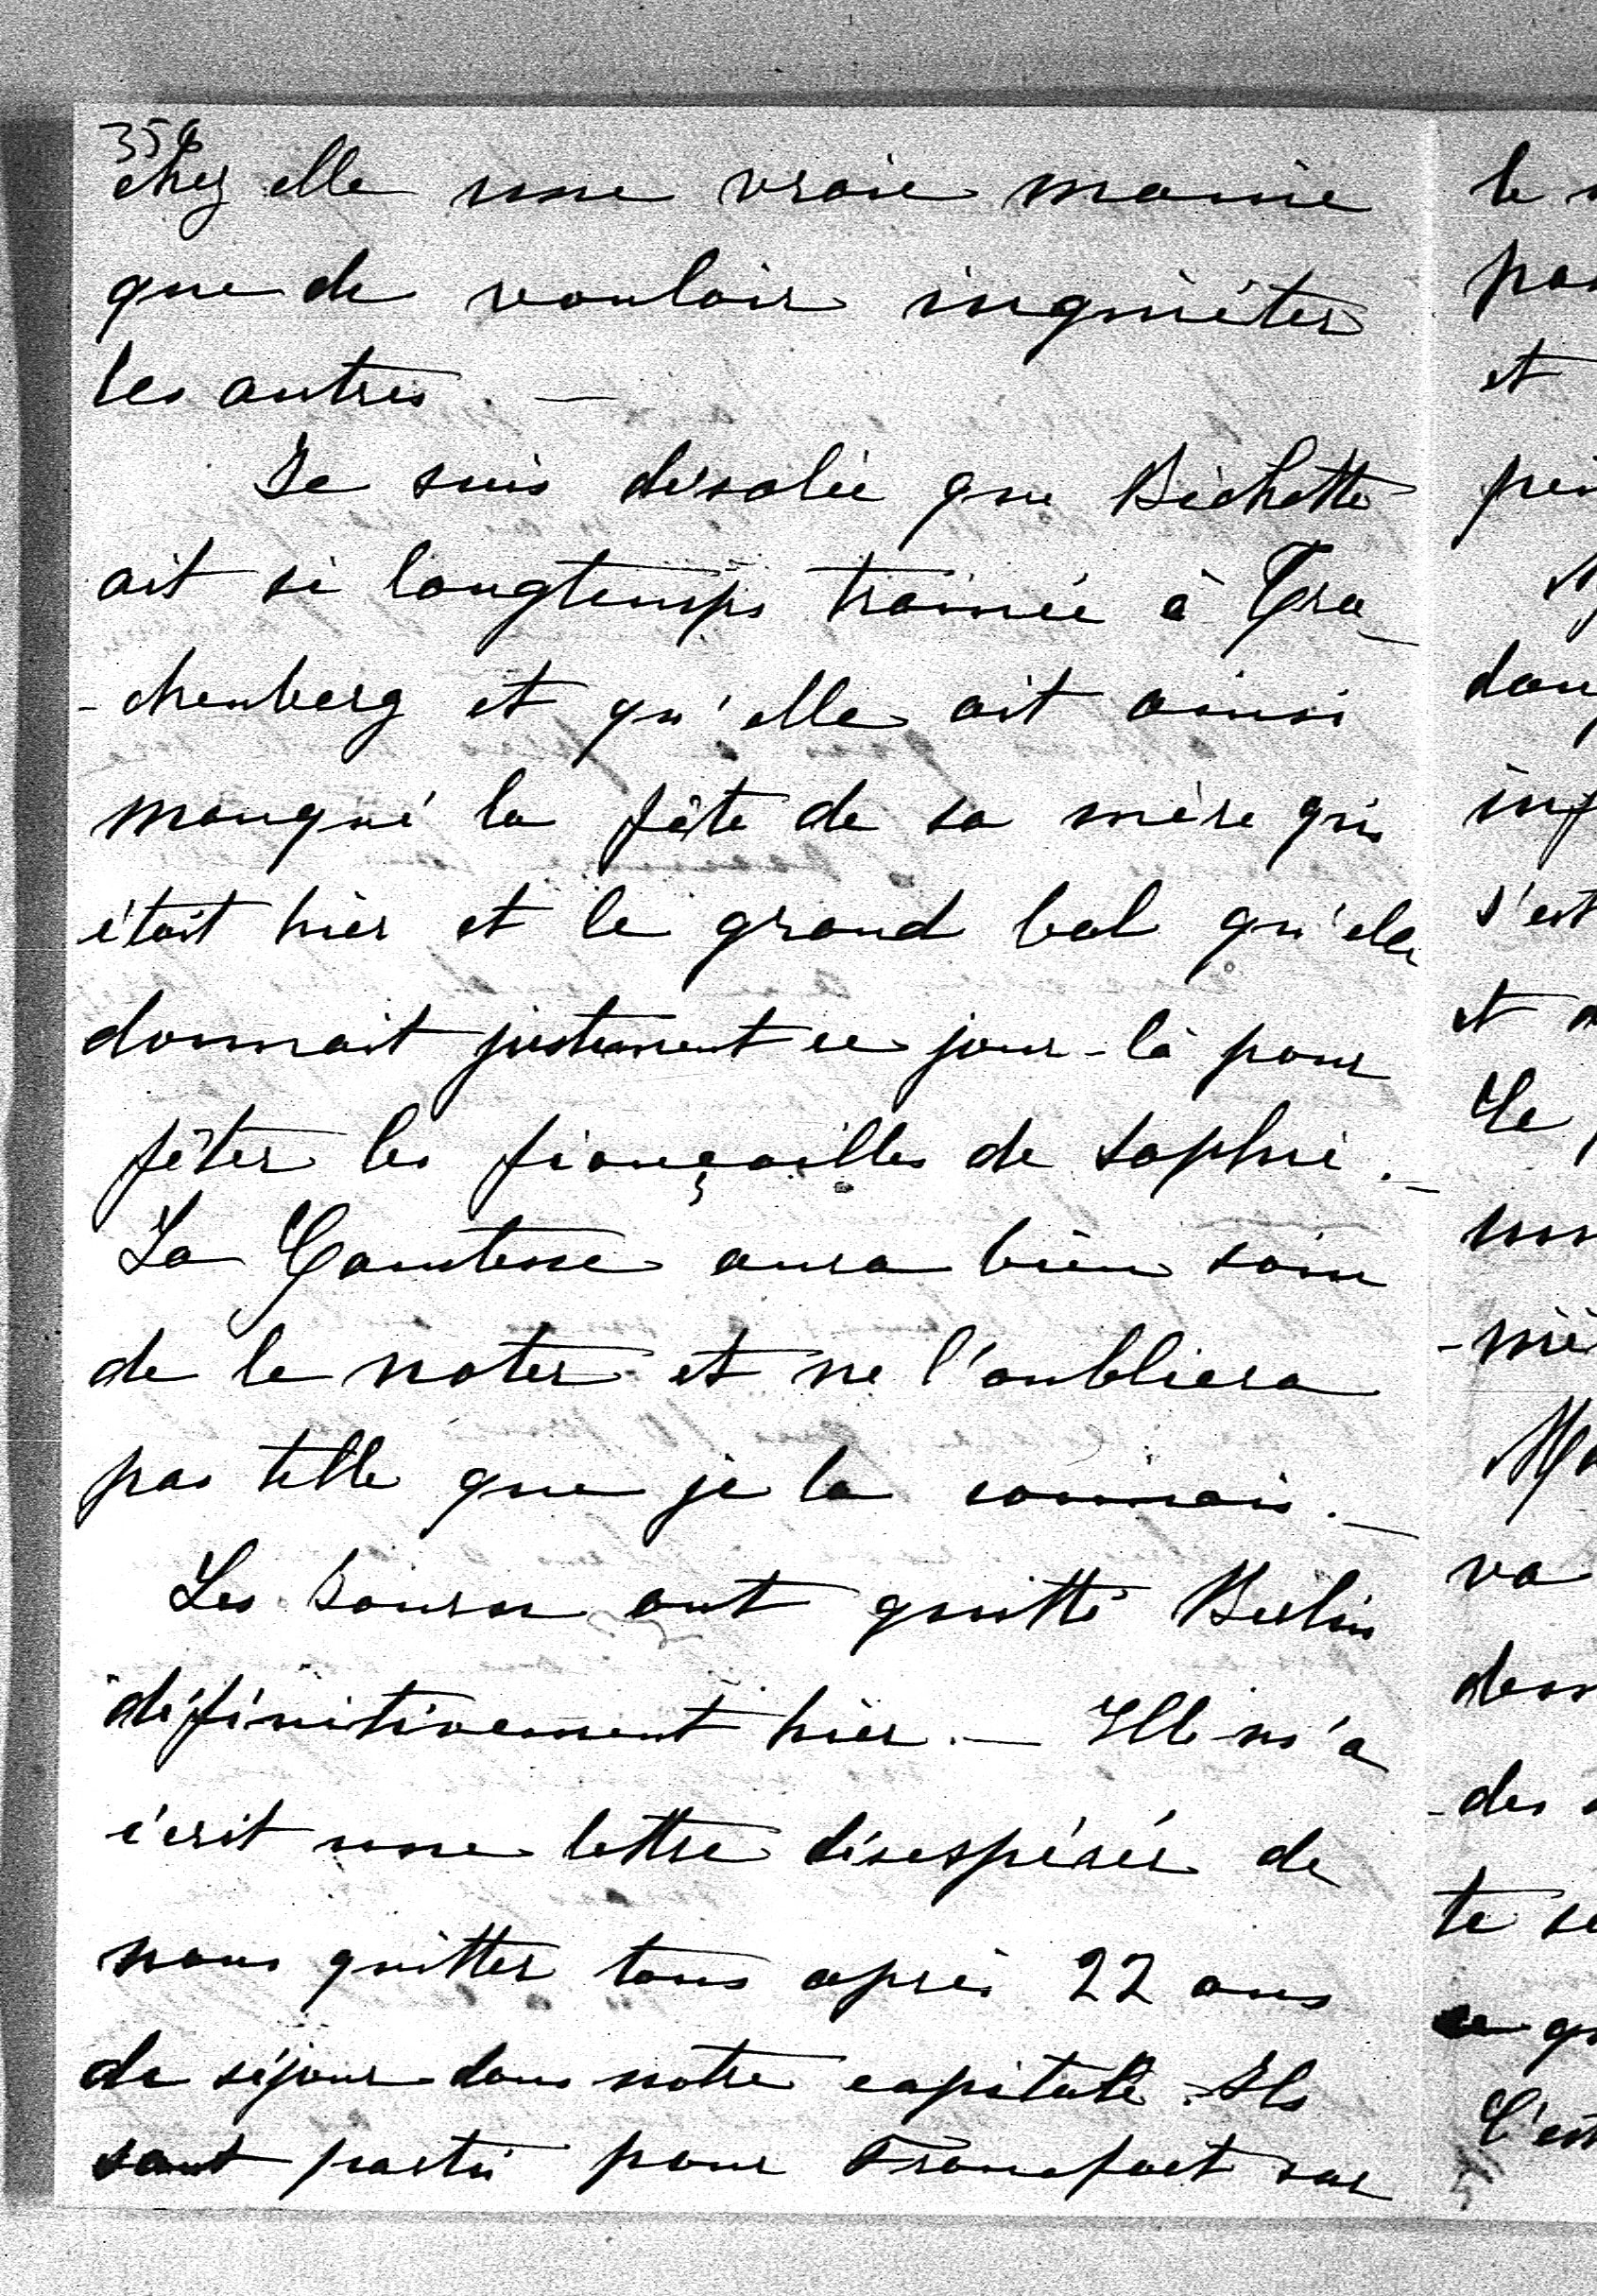 356
chez elle une vraie manie
que de vouloir inquiéter
les autres. —
Je suis désolée que Bichette
ait si longtemps trainée à Tra
-chenberg et qu'elle ait ainsi
manqué la fête de sa mère qui
était hier et le grand bal qu'elle
donnait justement ce jour-là pour
fêter les fiançailles de Sophie. —
La Comtesse aura bien soin
de le noter et ne l'oubliera
pas telle que je la connais. —
Les ont quitté Berlin
définitivement hier. — Elle m'a
écrit une lettre désespérée de
nous quitter tous après 22 ans
de séjour dans notre capitale. Ils
sont partis pour Francfort sur
le
et
s'est
et
Je
va
des
te
C'est